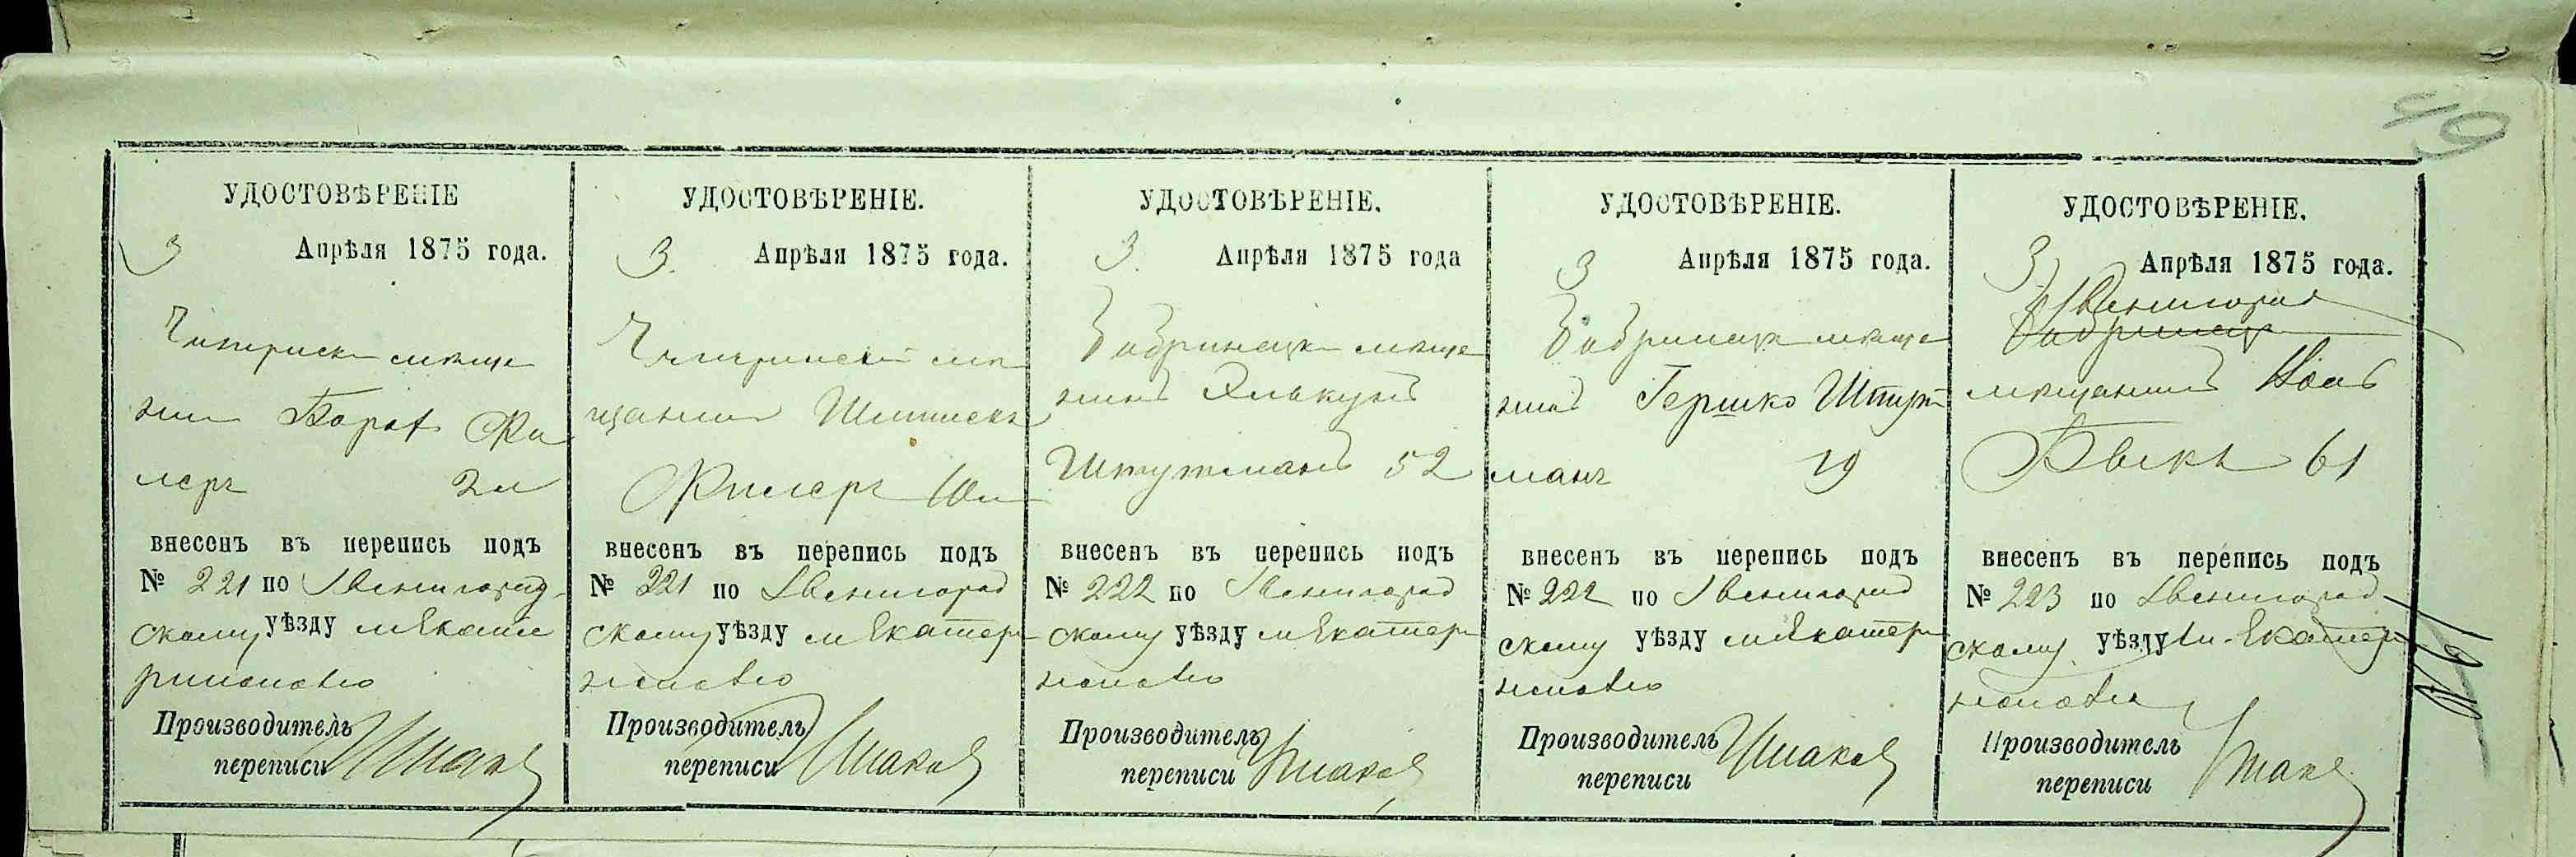 49
УДОСТОВѢРЕНІЕ
3 Апрѣля 1875 года.
Чигиринск мѣща
нин Борах Фи
леръ 2м
внесенъ въ перепись подъ
№ 221 по Звенигород
скому уѣзду м Екате
ринополю
Производитель
переписи
УДОСТОВѢРЕНІЕ.
3. Апрѣля 1875 года.
Чигиринскій мѣ
щанин
Филеръ 10м
внесенъ въ перепись подъ
№ 221 по Звенигород
скому уѣзду м Екатери
нополю
Производитель
переписи
УДОСТОВѢРЕНІЕ.
3. Апрѣля 1875 года
Бобринецк мѣща
нинъ Элькунъ
Штутманъ 52
внесенъ въ перепись подъ
№ 222 по Звенигород
скому уѣзду м Екатери
нополю
Производитель
переписи
УДОСТОВѢРЕНІЕ.
3 Апрѣля 1875 года.
Бобринецк мѣща
нинъ Гершко Штут
манъ 19
внесенъ въ перепись подъ
№ 222 по Звенигород
скому уѣзду м Екатери
нополю
Производитель
переписи
УДОСТОВѢРЕНІЕ.
3. Апрѣля 1875 года.
Звенигород
Бобринецк
мѣщанинъ
Быкъ 61
внесенъ въ перепись подъ
№ 223 по Звенигород
скому уѣзду м. Екатери
нополю
Производитель
переписи